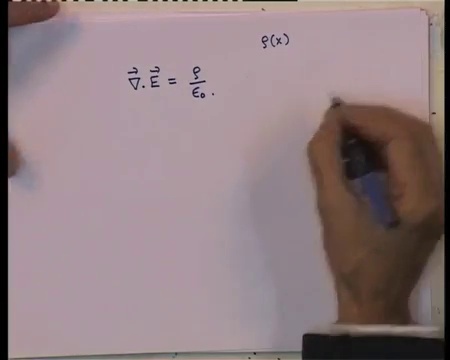 ρ(x)
∇⃗.E⃗ = ρ/ε₀.